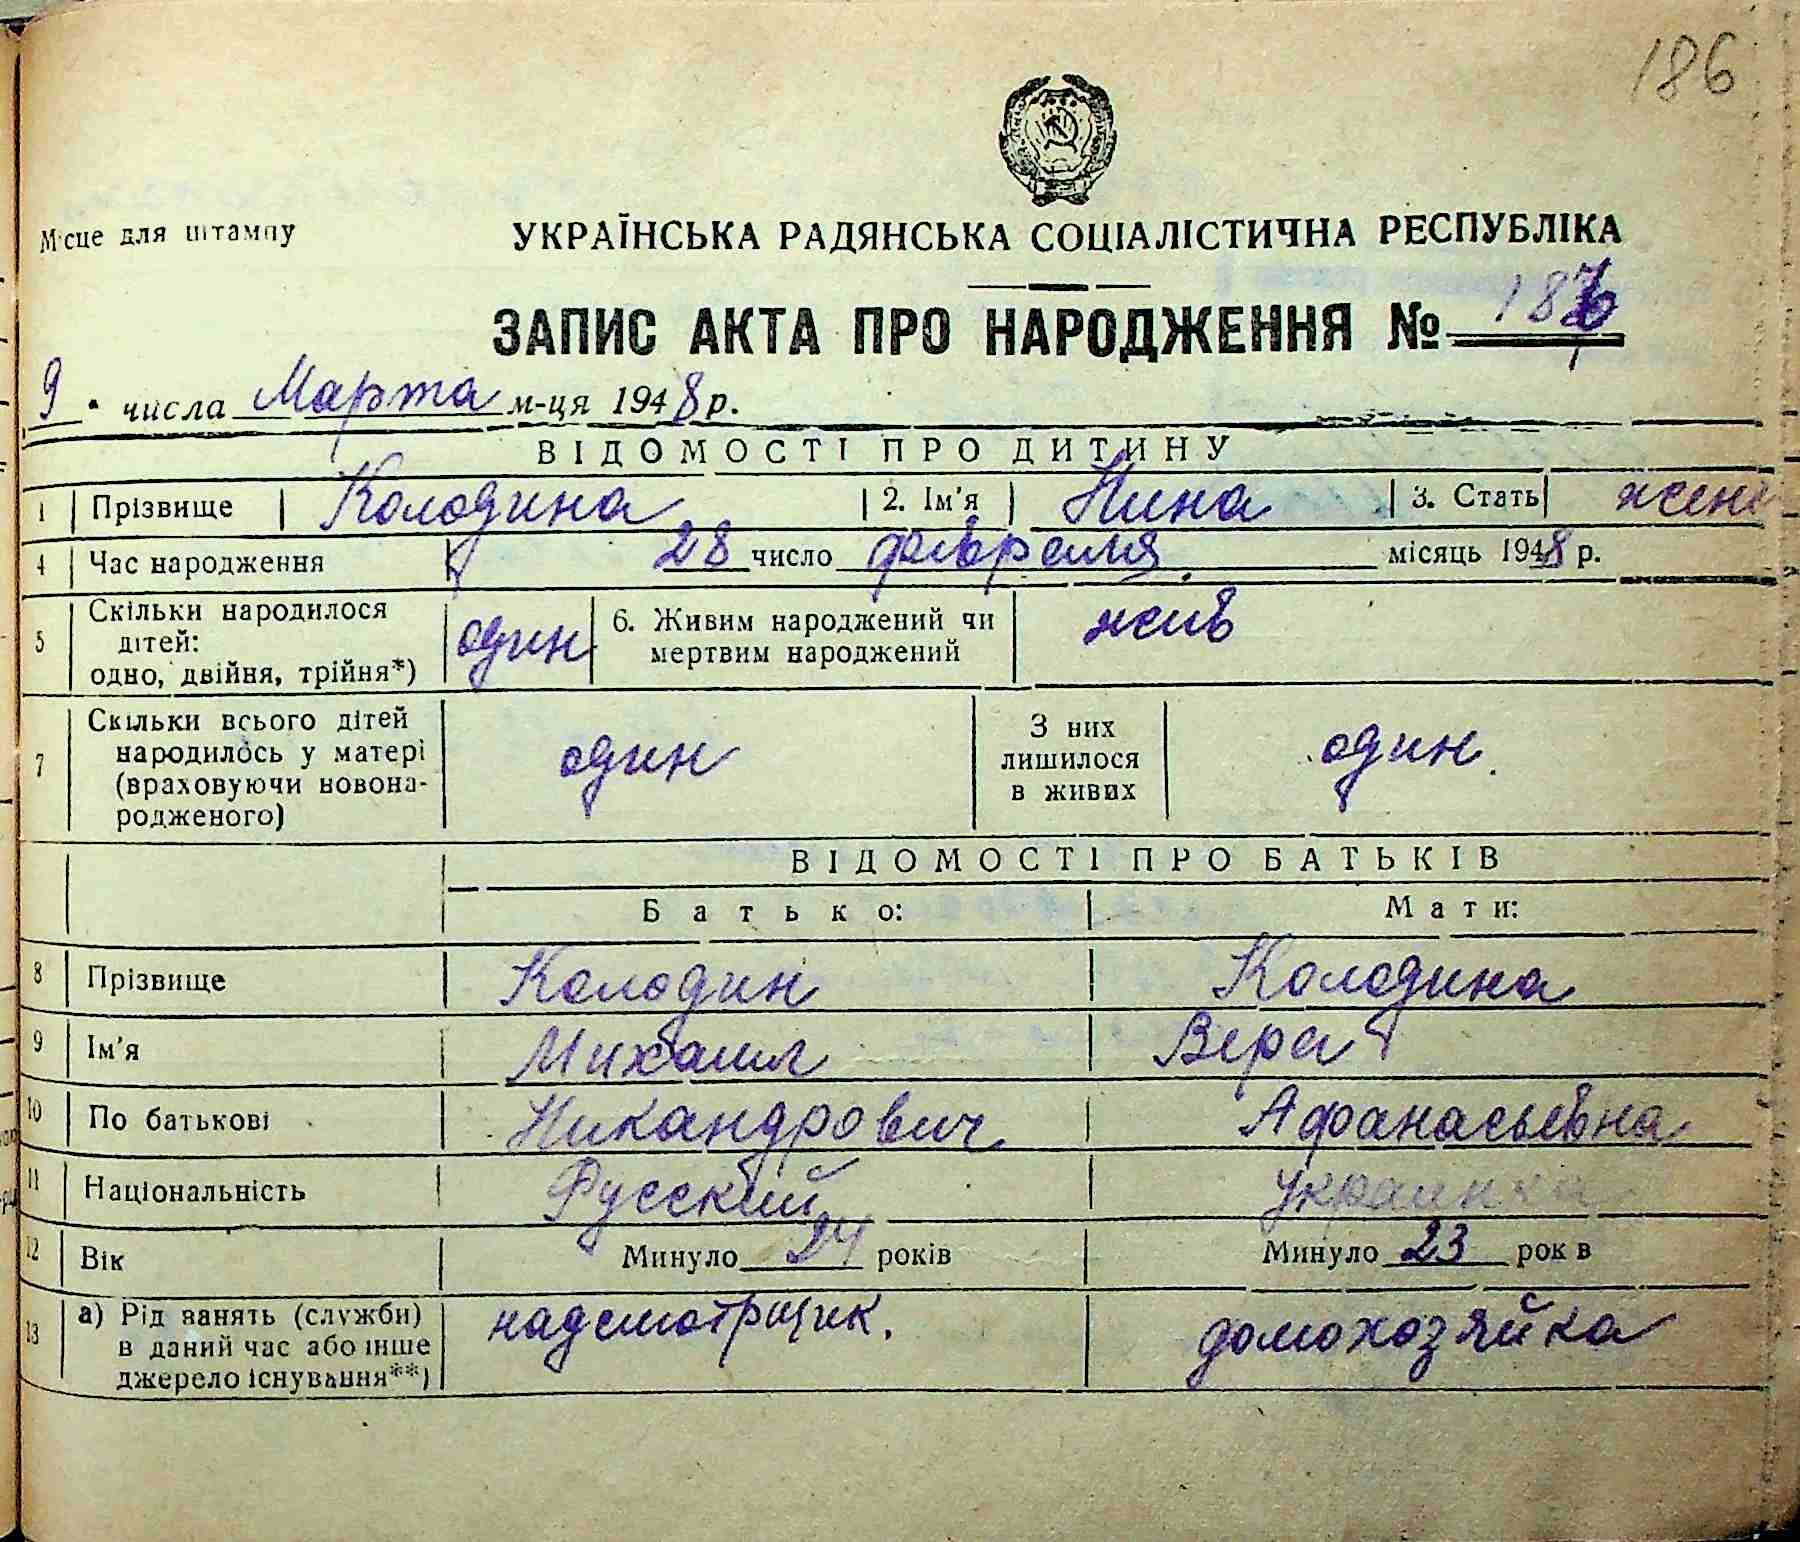 186
Місце для штампу
УКРАЇНСЬКА РАДЯНСЬКА СОЦІАЛІСТИЧНА РЕСПУБЛІКА
ЗАПИС АКТА ПРО НАРОДЖЕННЯ № 186
9 числа Марта м-ця 1948 р.
ВІДОМОСТІ ПРО ДИТИНУ
1 Прізвище Колодина 2. Ім'я Нина 3. Стать жен
4 Час народження 28 число февраля місяць 1948 р.
5 Скільки народилося дітей: одно, двійня, трійня*) один 6. Живим народжений чи мертвим народжений жив
7 Скільки всього дітей народилось у матері (враховуючи новонародженого) один З них лишилося в живих один.
ВІДОМОСТІ ПРО БАТЬКІВ
Батько: Мати:
8 Прізвище Колодин Колодина
9 Ім'я Михаил Вера
10 По батькові Никандрович Афанасьевна
11 Національність Русский Украинка
12 Вік Минуло 24 років Минуло 23 рок в
13 а) Рід занять (служби) в даний час або інше джерело існування**) надсмотрщик. домохозяйка